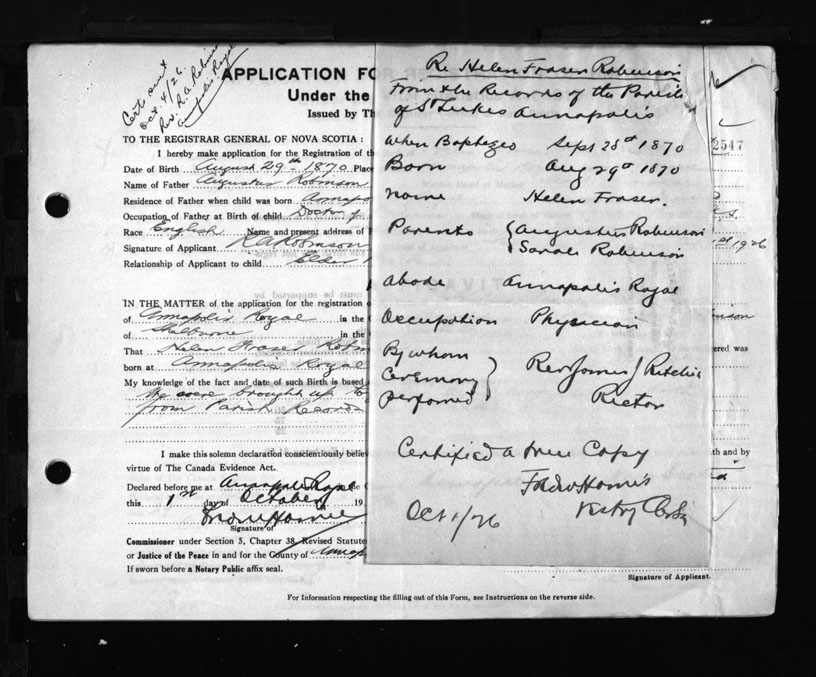 Cert sent
Oct. 4/26.
Rev. R. A. Robinson
Annapolis Royal
APPLICATION FO
Under the
Issued by Th
TO THE REGISTRAR GENERAL OF NOVA SCOTIA:
I hereby make application for the Registration of the
Date of Birth August 29th 1870 Place
Name of Father Augustus Robinson
Residence of Father when child was born Annapo
Occupation of Father at Birth of child Doctor of
Race English Name and present address of
Signature of Applicant R A Robinson
Relationship of Applicant to child Elder
IN THE MATTER of the application for the registration
of Annapolis Royal in the
of Shelburne in the
That Helen Frase Robin
born at Annapolis Royal
My knowledge of the fact and date of such Birth is based
We were brought up to
from Parish Records
I make this solemn declaration conscientiously believ
virtue of The Canada Evidence Act.
Declared before me at Annapolis Royal
this 1st day of October 19
Signature of
Commissioner under Section 5, Chapter 38, Revised Statute
or Justice of the Peace in and for the County of Annap
If sworn before a Notary Public affix seal.
For Information respecting the filling out of this Form, see Instructions on the reverse side.
Re Helen Fraser Robinson
From the Records of the Parish
of St Lukes Annapolis
When Baptized Sept 28th 1870
Born Aug 29th 1870
Name Helen Fraser.
Parents Augustus Robinson
Sarah Robinson
Abode Annapolis Royal
Occupation Physician
By whom
Ceremony Rev James J Ritchie
performed Rector
Certified a true Copy
Harris
Oct 1/26 Vestry Clerk
2547
1st 1926
inson
ered was
th and by
Signature of Applicant.